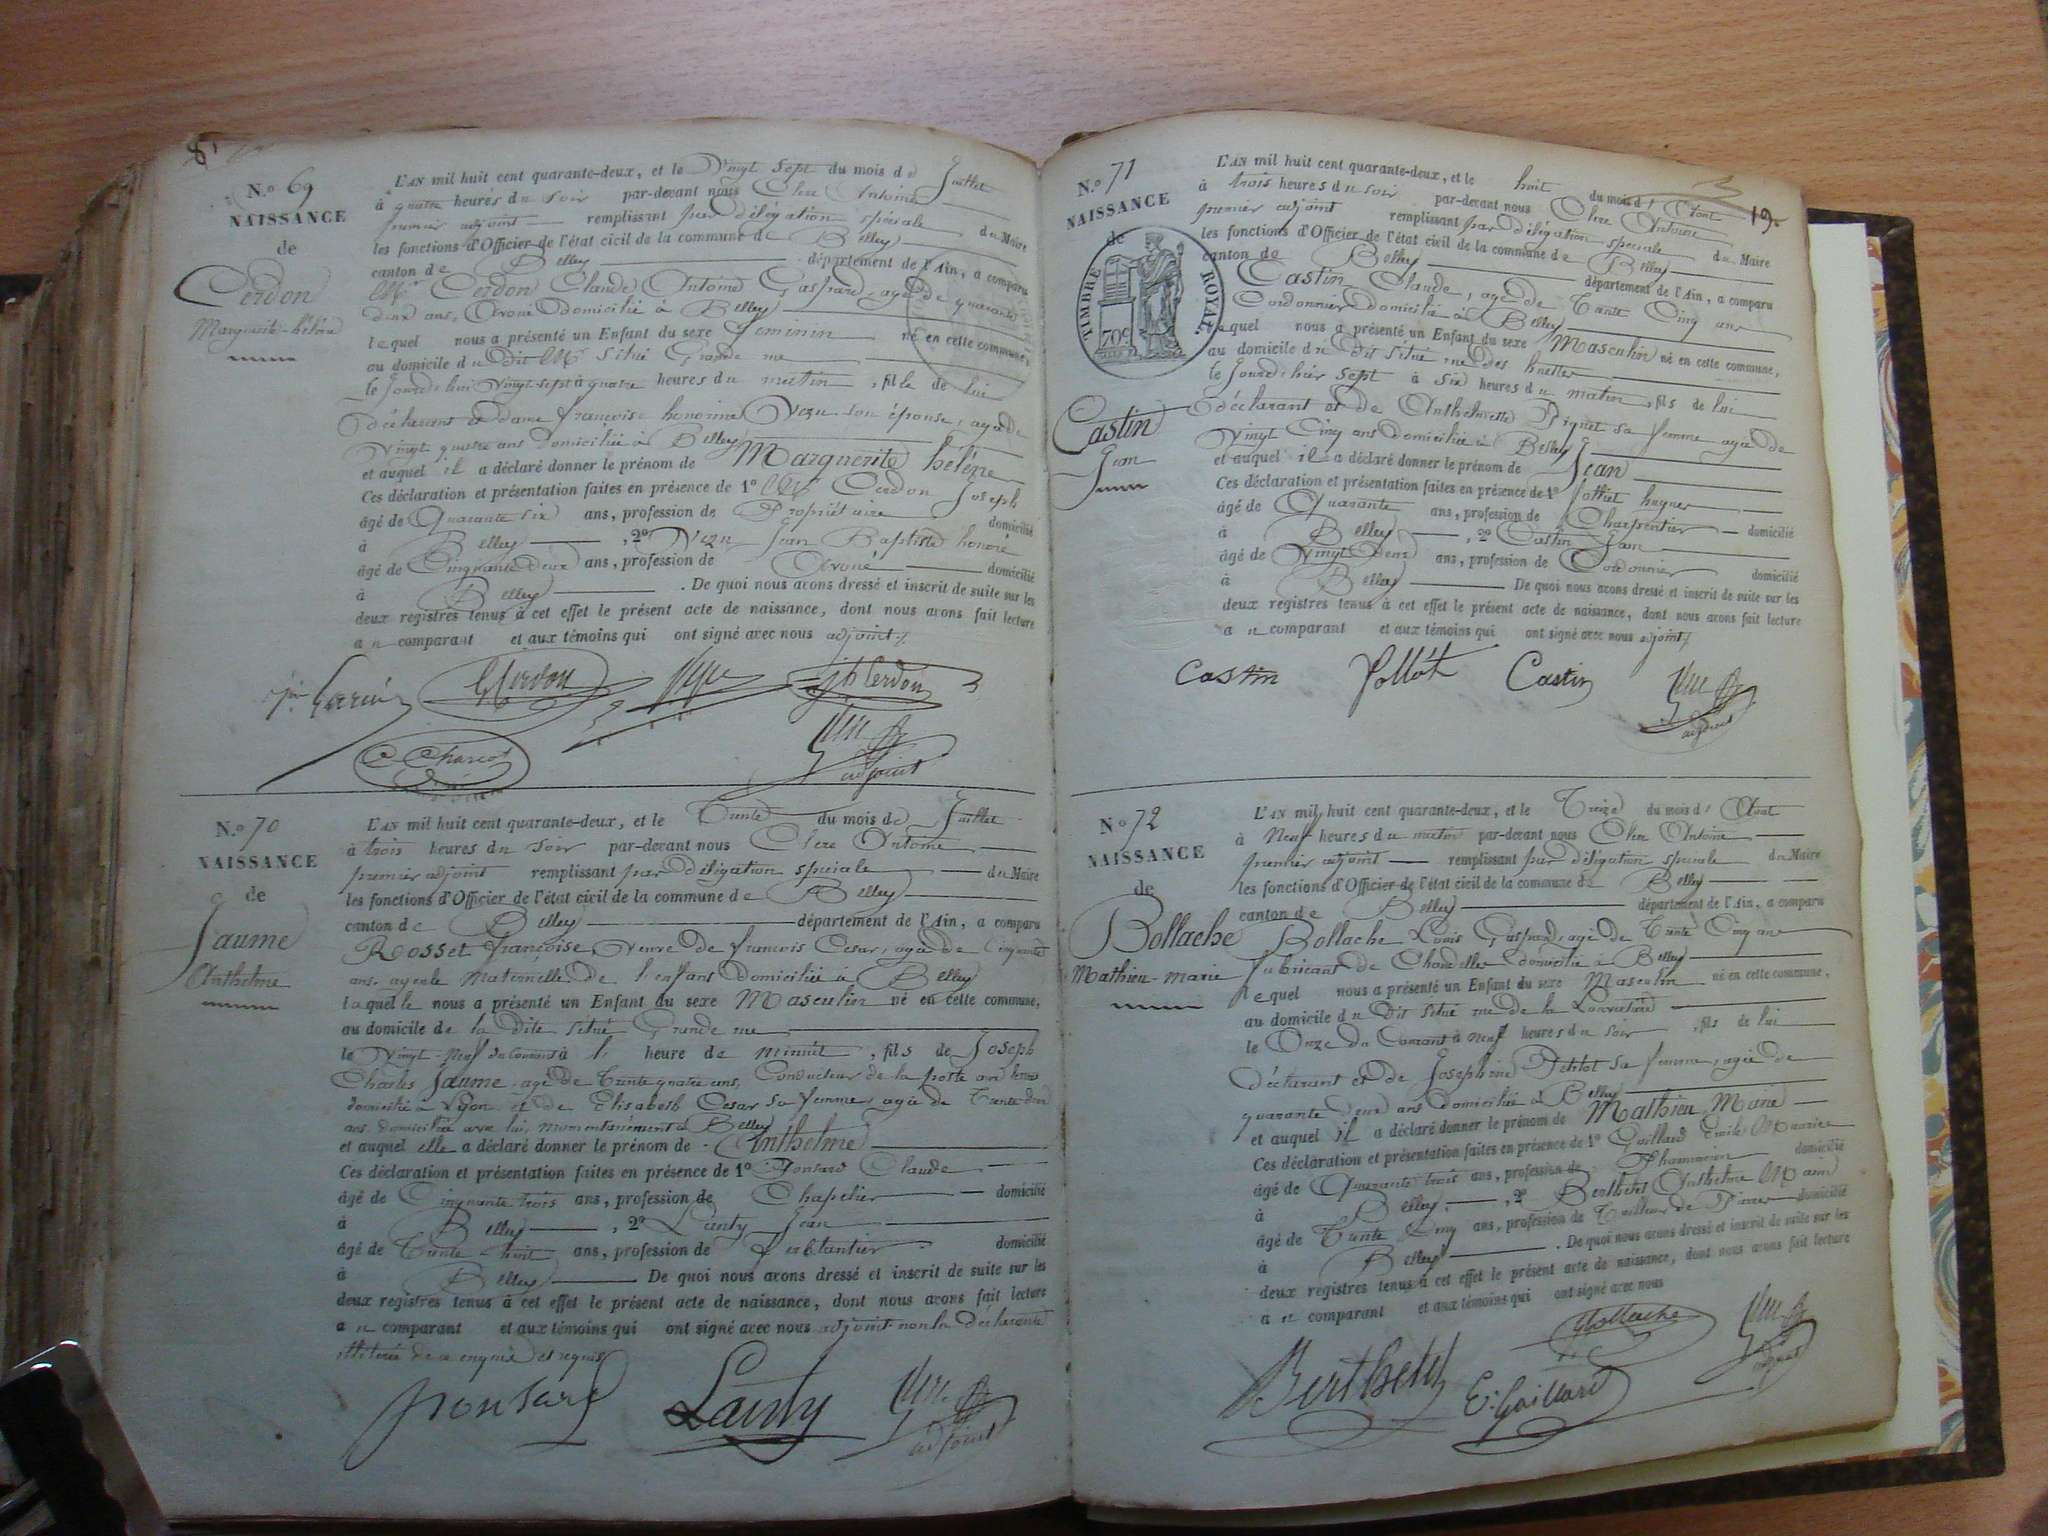 N.º 69
NAISSANCE
de
Cerdon
Marguerite-hélène
L'AN mil huit cent quarante-deux, et le Vingt sept du mois de Juillet
à quatre heures du soir par-devant nous Antoine
premier adjoint remplissant par délégation spéciale du Maire
les fonctions d'Officier de l'état civil de la commune de Belley
canton de Belley département de l'Ain, a comparu
Mr Cerdon Claude Antoine Gaspard, agé de quarante
deux ans, Avoué domicilié à Belley
lequel nous a présenté un Enfant du sexe feminin né en cette commune,
au domicile du dit Mr situé Grande rue
le Jourd'hui Vingt sept à quatre heures du matin, fille de lui
déclarant et dame françoise honorine son épouse, agée de
Vingt quatre ans domiciliée à Belley
et auquel il a déclaré donner le prénom de Marguerite hélène
Ces déclaration et présentation faites en présence de 1º Mr Cerdon Joseph
âgé de Quarante six ans, profession de Propriétaire domicilié
à Belley, 2º Jean Baptiste honoré
âgé de Cinquante deux ans, profession de Avoué domicilié
à Belley. De quoi nous avons dressé et inscrit de suite sur les
deux registres tenus à cet effet le présent acte de naissance, dont nous avons fait lecture
au comparant et aux témoins qui ont signé avec nous adjoint
Cerdon
Cerdon
adjoint
N.º 70
NAISSANCE
de
Jaume
Anthelme
L'AN mil huit cent quarante-deux, et le Trente du mois de Juillet
à trois heures du soir par-devant nous Antoine
premier adjoint remplissant par délégation spéciale du Maire
les fonctions d'Officier de l'état civil de la commune de Belley
canton de Belley département de l'Ain, a comparu
Rosset françoise, Veuve de françois Cesar, agée de Cinquante
ans, ayeule Maternelle de l'enfant domiciliée à Belley
laquelle nous a présenté un Enfant du sexe Masculin né en cette commune,
au domicile de la dite situé Grande rue
le Vingt-neuf du Courant à l' heure de minuit, fils de Joseph
Charles Jaume, agé de Trente quatre ans, Conducteur de la poste aux
domicilié à Lyon et de Elisabeth Cesar sa femme, agée de Trente deux
ans domiciliée avec lui, momentanément à Belley
et auquel elle a déclaré donner le prénom de Anthelme
Ces déclaration et présentation faites en présence de 1º Ponsard Claude
âgé de Cinquante trois ans, profession de Chapelier domicilié
à Belley, 2º Lanty Jean
âgé de Trente-huit ans, profession de ferblantier domicilié
à Belley De quoi nous avons dressé et inscrit de suite sur les
deux registres tenus à cet effet le présent acte de naissance, dont nous avons fait lecture
au comparant et aux témoins qui ont signé avec nous adjoint non la déclarante
illiterée de ce enquise et requise
Ponsard Lanty adjoint
19.
N.º 71
NAISSANCE
de
TIMBRE ROYAL
70c
Castin
Jean
L'AN mil huit cent quarante-deux, et le huit du mois d'Aout
à trois heures du soir par-devant nous Antoine
premier adjoint remplissant par délégation speciale du Maire
les fonctions d'Officier de l'état civil de la commune de Belley
canton de Belley département de l'Ain, a comparu
Castin Claude, agé de Trente Cinq ans
Cordonnier domicilié à Belley
lequel nous a présenté un Enfant du sexe Masculin né en cette commune,
au domicile du dit situé rue des
le Jourd'hier sept à six heures du matin, fils de lui
déclarant et de Anthelmette sa femme agée de
Vingt Cinq ans domiciliée à Belley
et auquel il a déclaré donner le prénom de Jean
Ces déclaration et présentation faites en présence de 1º hugues
âgé de Quarante ans, profession de Charpentier domicilié
à Belley, 2º Castin Jean
âgé de Vingt Deux ans, profession de Cordonnier domicilié
à Belley De quoi nous avons dressé et inscrit de suite sur les
deux registres tenus à cet effet le présent acte de naissance, dont nous avons fait lecture
au comparant et aux témoins qui ont signé avec nous adjoint
Castin Castin
adjoint
N.º 72
NAISSANCE
de
Bollache
Mathieu-marie
L'AN mil huit cent quarante-deux, et le Treize du mois d'Aout
à Neuf heures du matin par-devant nous Antoine
premier adjoint remplissant par délégation spéciale du Maire
les fonctions d'Officier de l'état civil de la commune de Belley
canton de Belley département de l'Ain, a comparu
Bollache Louis Gaspard, agé de Trente Cinq ans
fabricant de Chandelles domicilié à Belley
lequel nous a présenté un Enfant du sexe Masculin né en cette commune,
au domicile du dit situé rue de la
le Onze du Courant à neuf heures du soir, fils de lui
déclarant et de Josephine Petitot sa femme, agée de
quarante deux ans domiciliée à Belley
et auquel il a déclaré donner le prénom de Mathieu Marie
Ces déclaration et présentation faites en présence de 1º Gaillard Emile
âgé de Quarante trois ans, profession de Pharmacien domicilié
à Belley, 2º Berthet Anthelme
âgé de Trente Cinq ans, profession de Tailleur de Pierres domicilié
à Belley. De quoi nous avons dressé et inscrit de suite sur les
deux registres tenus à cet effet le présent acte de naissance, dont nous avons fait lecture
au comparant et aux témoins qui ont signé avec nous
Bollache
Berthet E. Gaillard adjoint